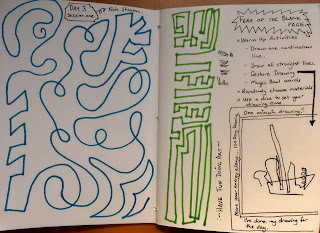 DAY 3
SESSION ONE
FEAR OF THE BLANK
PAGE.
• Warm Up Activities
- Draw one continuous
line.
- Draw all straight lines.
- Gesture Drawing
- Magic Bowl words
• Randomly choose materials
• Use a dice to set your
drawing time
One minute drawing?
I've done my drawing for
the day.
~HAVE FUN DOING ART~